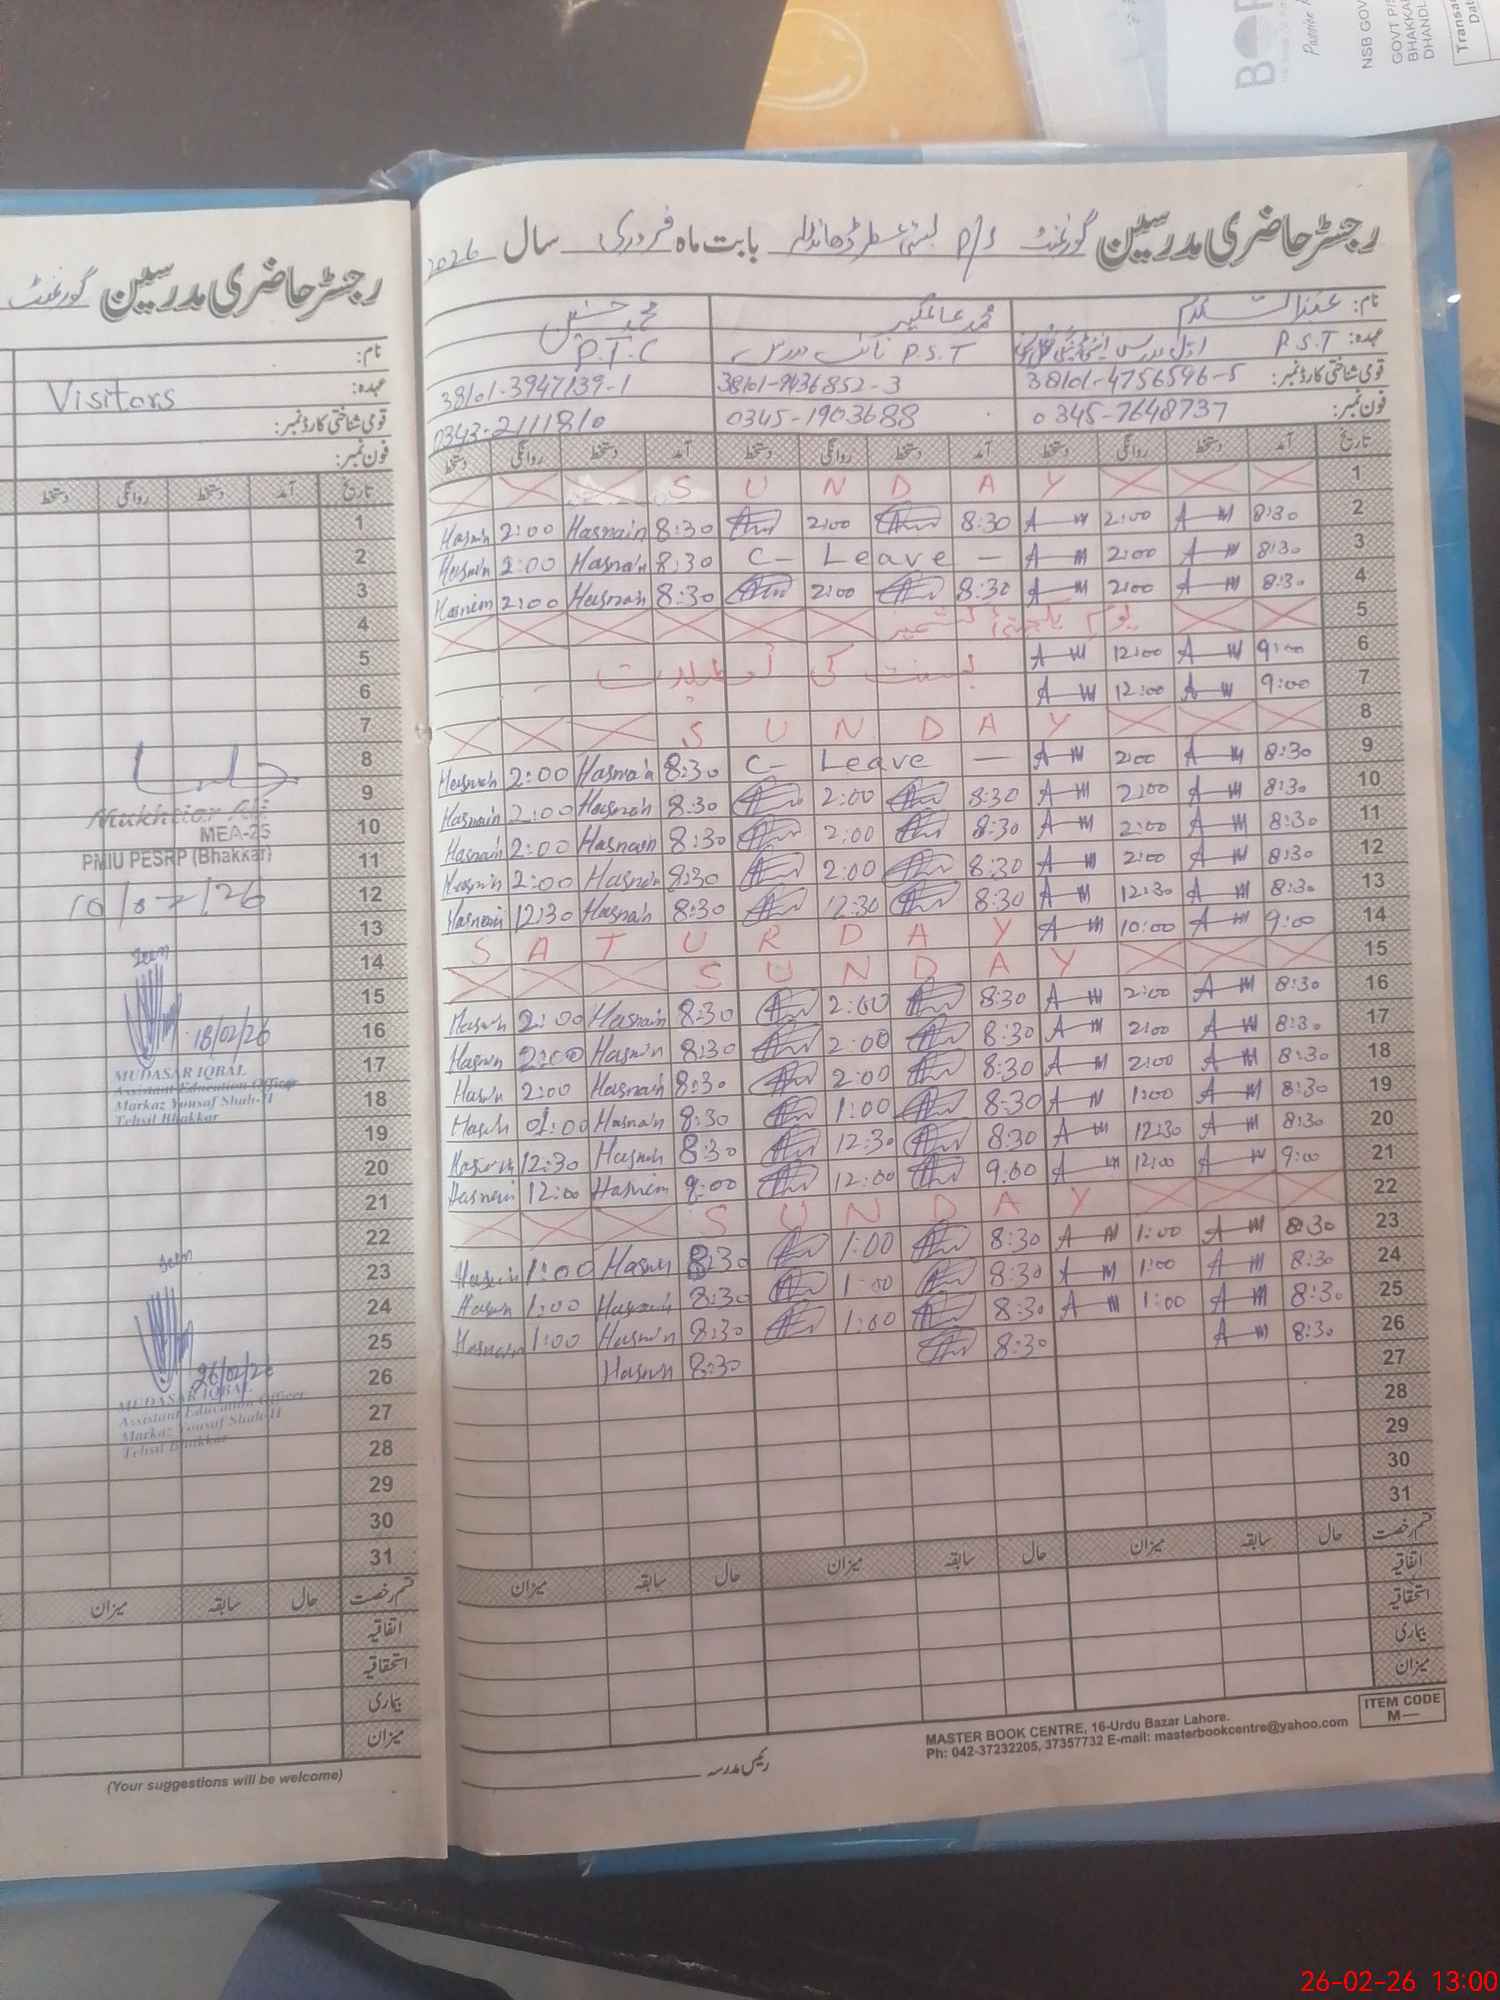 BOP
NSB GOV
GOVT P/S
BHAKKAR
DHANDL
Transa
Dat
رجسٹر حاضری مدرسین گورنمنٹ
نام:
عہدہ: Visitors
قومی شناختی کارڈ نمبر:
فون نمبر:
تاریخ آمد دستخط روانگی دستخط
1
2
3
4
5
6
7
8
9
Mukhtiar Ali
10 MEA-25
PMIU PESRP (Bhakkar)
11
12 10/02/26
13
14 Seen
15
16 18/02/26
17 MUDASAR IQBAL
Assistant Education Officer
18 Markaz Yousaf Shah-II
Tehsil Bhakkar
19
20
21
22 Seen
23
24
25
26 26/02/26
MUDASAR IQBAL
Assistant Education Officer
27 Markaz Yousaf Shah-II
Tehsil Bhakkar
28
29
30
31
قسم رخصت حال سابقہ میزان
اتفاقیہ
استحقاقیہ
بیماری
میزان
(Your suggestions will be welcome)
رجسٹر حاضری مدرسین گورنمنٹ P/S بابت ماہ فروری سال 2026
نام: محمد عالمگیر محمد حسنین
عہدہ: P.S.T P.S.T P.T.C
قومی شناختی کارڈ نمبر: 38101-4756596-5 38101-9436852-3 38101-3947139-1
فون نمبر: 0345-7648737 0345-1903688 0343-2111810
تاریخ آمد دستخط روانگی دستخط آمد دستخط روانگی دستخط آمد دستخط روانگی دستخط
1 S U N D A Y
2 Hasnain 2:00 Hasnain 8:30 2:00 8:30 2:00 8:30
3 Hasnain 2:00 Hasnain 8:30 C- Leave — 2:00 8:30
4 Hasnain 2:00 Hasnain 8:30 2:00 8:30 2:00 8:30
5 یوم یکجہتی کشمیر
6 بسنت کی تعطیلات 12:00 9:00
7 12:00 9:00
8 S U N D A Y
9 Hasnain 2:00 Hasnain 8:30 C- Leave — 2:00 8:30
10 Hasnain 2:00 Hasnain 8:30 2:00 8:30 2:00 8:30
11 Hasnain 2:00 Hasnain 8:30 2:00 8:30 2:00 8:30
12 Hasnain 2:00 Hasnain 8:30 2:00 8:30 2:00 8:30
13 Hasnain 12:30 Hasnain 8:30 12:30 8:30 12:30 8:30
14 S A T U R D A Y 10:00 9:00
15 S U N D A Y
16 Hasnain 2:00 Hasnain 8:30 2:00 8:30 2:00 8:30
17 Hasnain 2:00 Hasnain 8:30 2:00 8:30 2:00 8:30
18 Hasnain 2:00 Hasnain 8:30 2:00 8:30 2:00 8:30
19 Hasnain 01:00 Hasnain 8:30 1:00 8:30 1:00 8:30
20 Hasnain 12:30 Hasnain 8:30 12:30 8:30 12:30 8:30
21 Hasnain 12:00 Hasnain 9:00 12:00 9:00 12:00 9:00
22 S U N D A Y
23 Hasnain 1:00 Hasnain 8:30 1:00 8:30 1:00 8:30
24 Hasnain 1:00 Hasnain 8:30 1:00 8:30 1:00 8:30
25 Hasnain 1:00 Hasnain 8:30 1:00 8:30 1:00 8:30
26 Hasnain 8:30 8:30 8:30
27
28
29
30
31
قسم رخصت حال سابقہ میزان حال سابقہ میزان حال سابقہ میزان
اتفاقیہ
استحقاقیہ
بیماری
میزان
ITEM CODE
M—
MASTER BOOK CENTRE, 16-Urdu Bazar Lahore.
Ph: 042-37232205, 37357732 E-mail: masterbookcentre@yahoo.com
رئیس مدرسہ
26-02-26 13:00